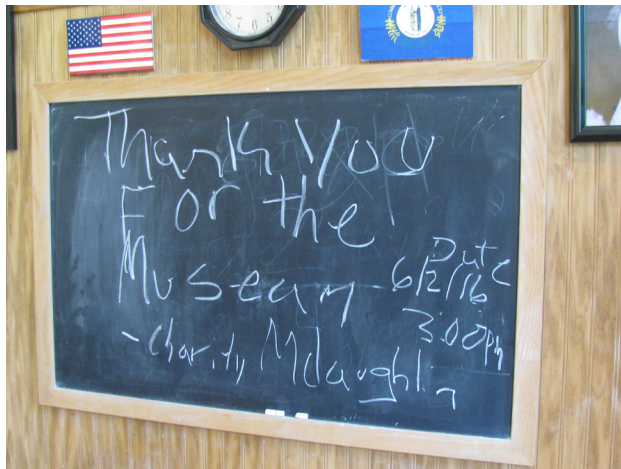 Thank You
For the
Museam
Date
6/2/16
3:00pm
- Charity Mclaughlin